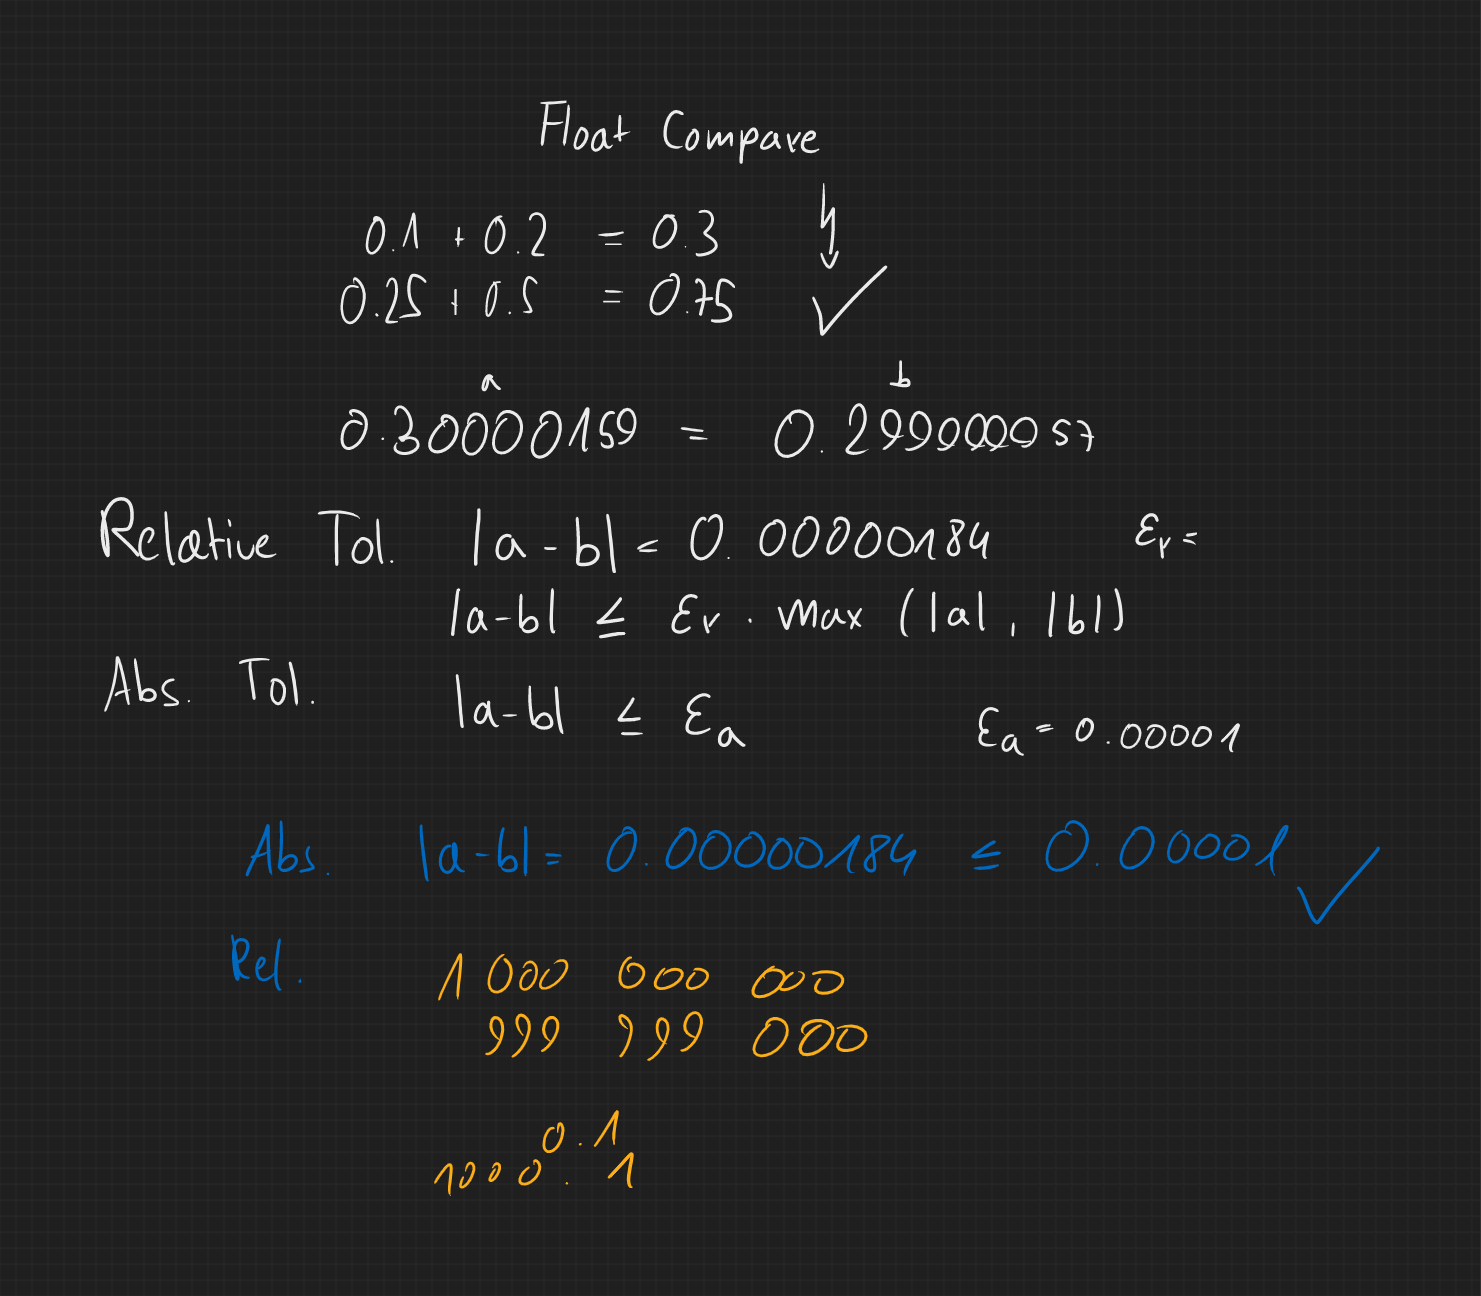 Float Compare
0.1 + 0.2 = 0.3
0.25 + 0.5 = 0.75 ✓
a b
0.30000159 = 0.299000057
Relative Tol. |a-b| = 0.00000184 εr =
|a-b| ≤ εr · max (|a|, |b|)
Abs. Tol. |a-b| ≤ εa εa = 0.00001
Abs. |a-b| = 0.00000184 ≤ 0.00001 ✓
Rel. 1 000 000 000
999 999 000
0.1
1000.1